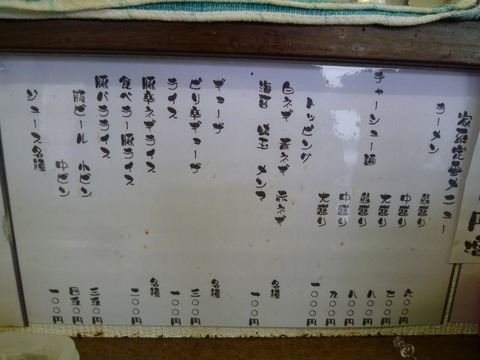 ラーメン
並盛り 六〇〇円
中盛り 七〇〇円
大盛り 八〇〇円
チャーシュー麺
並盛り 八〇〇円
中盛り 九〇〇円
大盛り 一〇〇〇円
トッピング
白ネギ 青ネギ 赤ネギ
海苔 味玉 メンマ
各種 一〇〇円
ギョーザ
ピリ辛ギョーザ
各種 三〇〇円
ライス 一〇〇円
豚辛ネギライス
食べラー豚ライス
豚バラライス
各種
瓶ビール 大ビン
中ビン
ジュース各種 一〇〇円